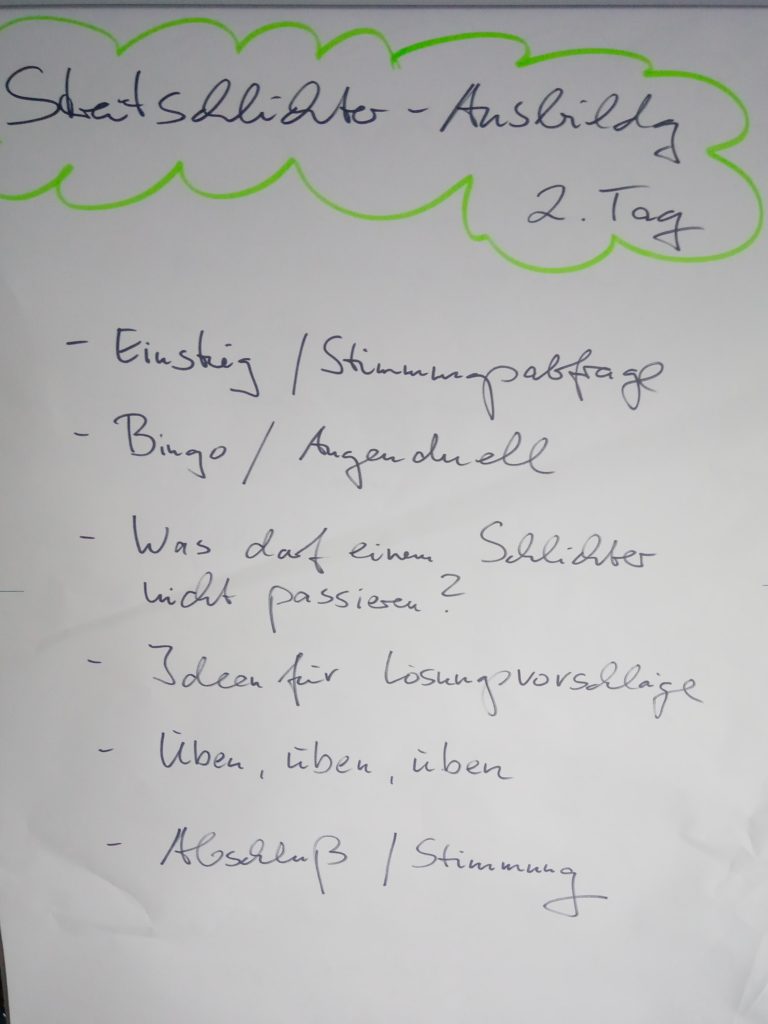 Streitschlichter - Ausbildg
2. Tag
- Einstieg / Stimmungsabfrage
- Bingo / Augenduell
- Was darf einem Schlichter
nicht passieren?
- Ideen für Lösungsvorschläge
- Üben, üben, üben
- Abschluß / Stimmung